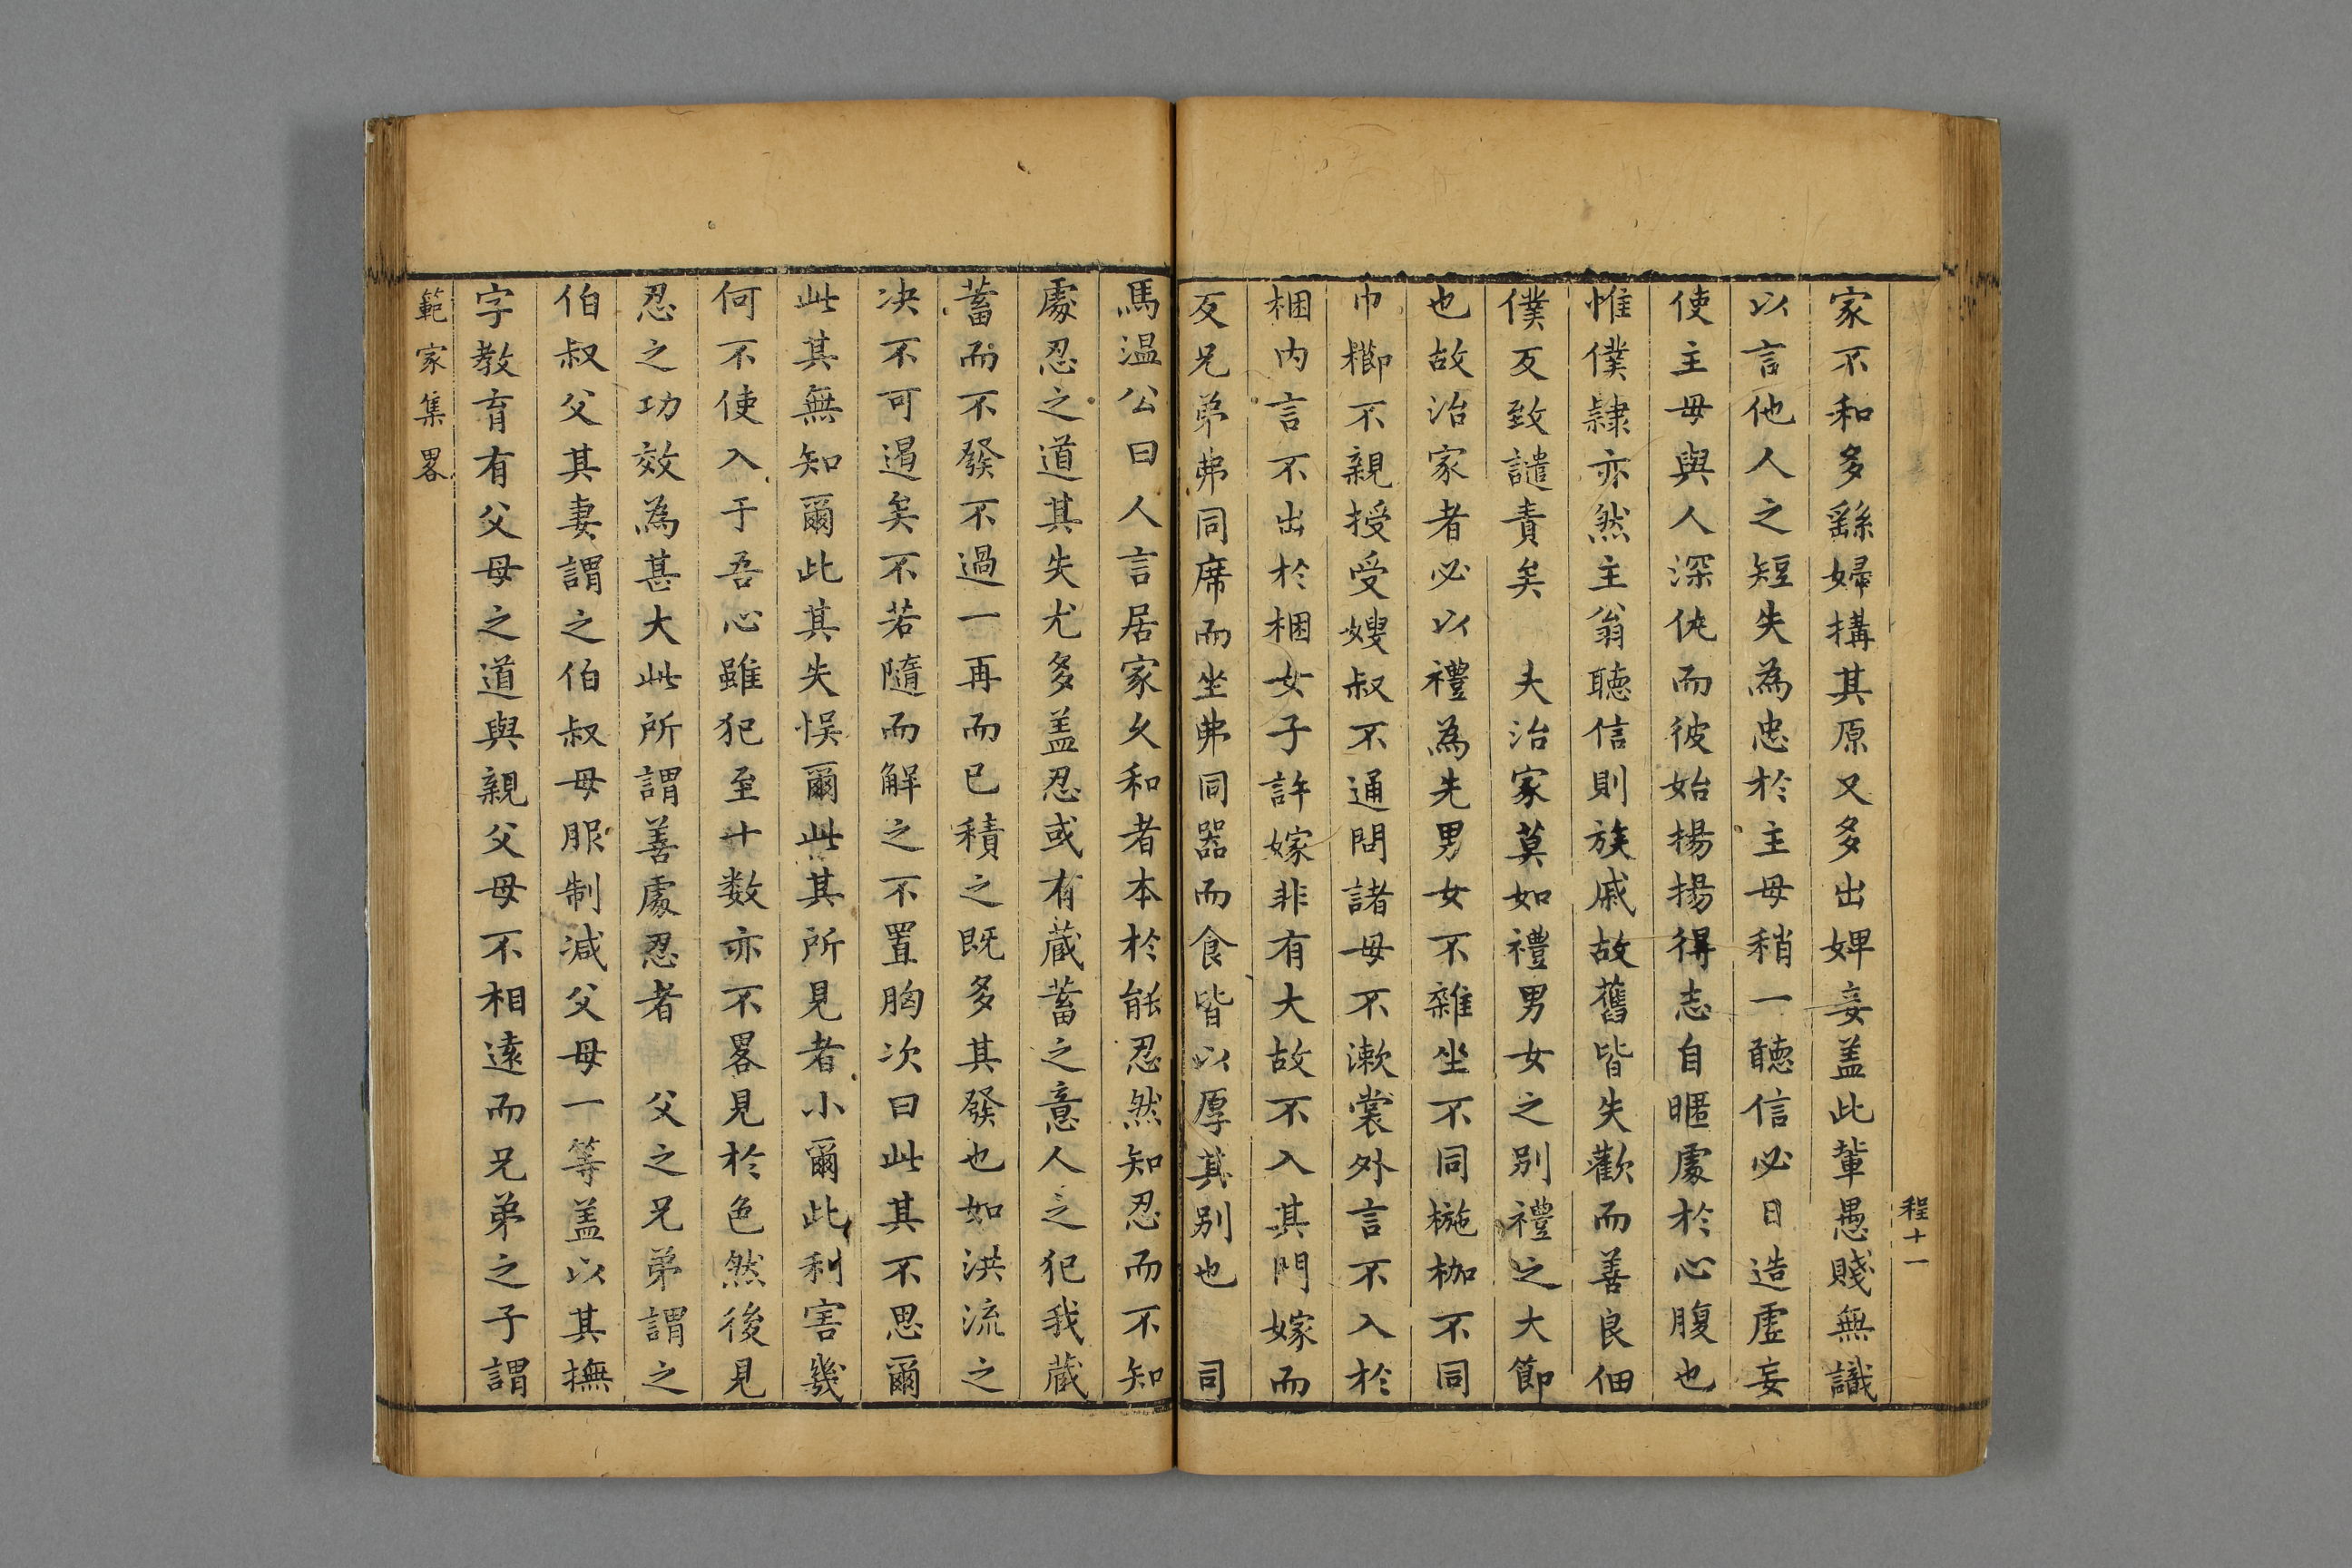 程十一
家不和多繇婦搆其原又多出婢妾盖此輩愚賤無識
以言他人之短失為忠於主母稍一聽信必日造虛妄
使主母與人深仇而彼始揚揚得志自暱處於心腹也
惟僕隷亦然主翁聽信則族戚故舊皆失歡而善良佃
僕反致譴責矣　夫治家莫如禮男女之别禮之大節
也故治家者必以禮為先男女不雜坐不同椸枷不同
巾櫛不親授受嫂叔不通問諸母不漱裳外言不入於
梱内言不出於梱女子許嫁非有大故不入其門嫁而
反兄弟弗同席而坐弗同器而食皆以厚其别也　司
馬温公曰人言居家乆和者本於能忍然知忍而不知
處忍之道其失尤多盖忍或有蔵蓄之意人之犯我蔵
蓄而不發不過一再而已積之既多其發也如洪流之
决不可遏矣不若隨而解之不置胸次曰此其不思爾
此其無知爾此其失悞爾此其所見者小爾此利害幾
何不使入于吾心雖犯至十数亦不畧見於色然後見
忍之功效為甚大此所謂善處忍者　父之兄弟謂之
伯叔父其妻謂之伯叔母服制减父母一等盖以其撫
字教育有父母之道與親父母不相遠而兄弟之子謂
範家集畧